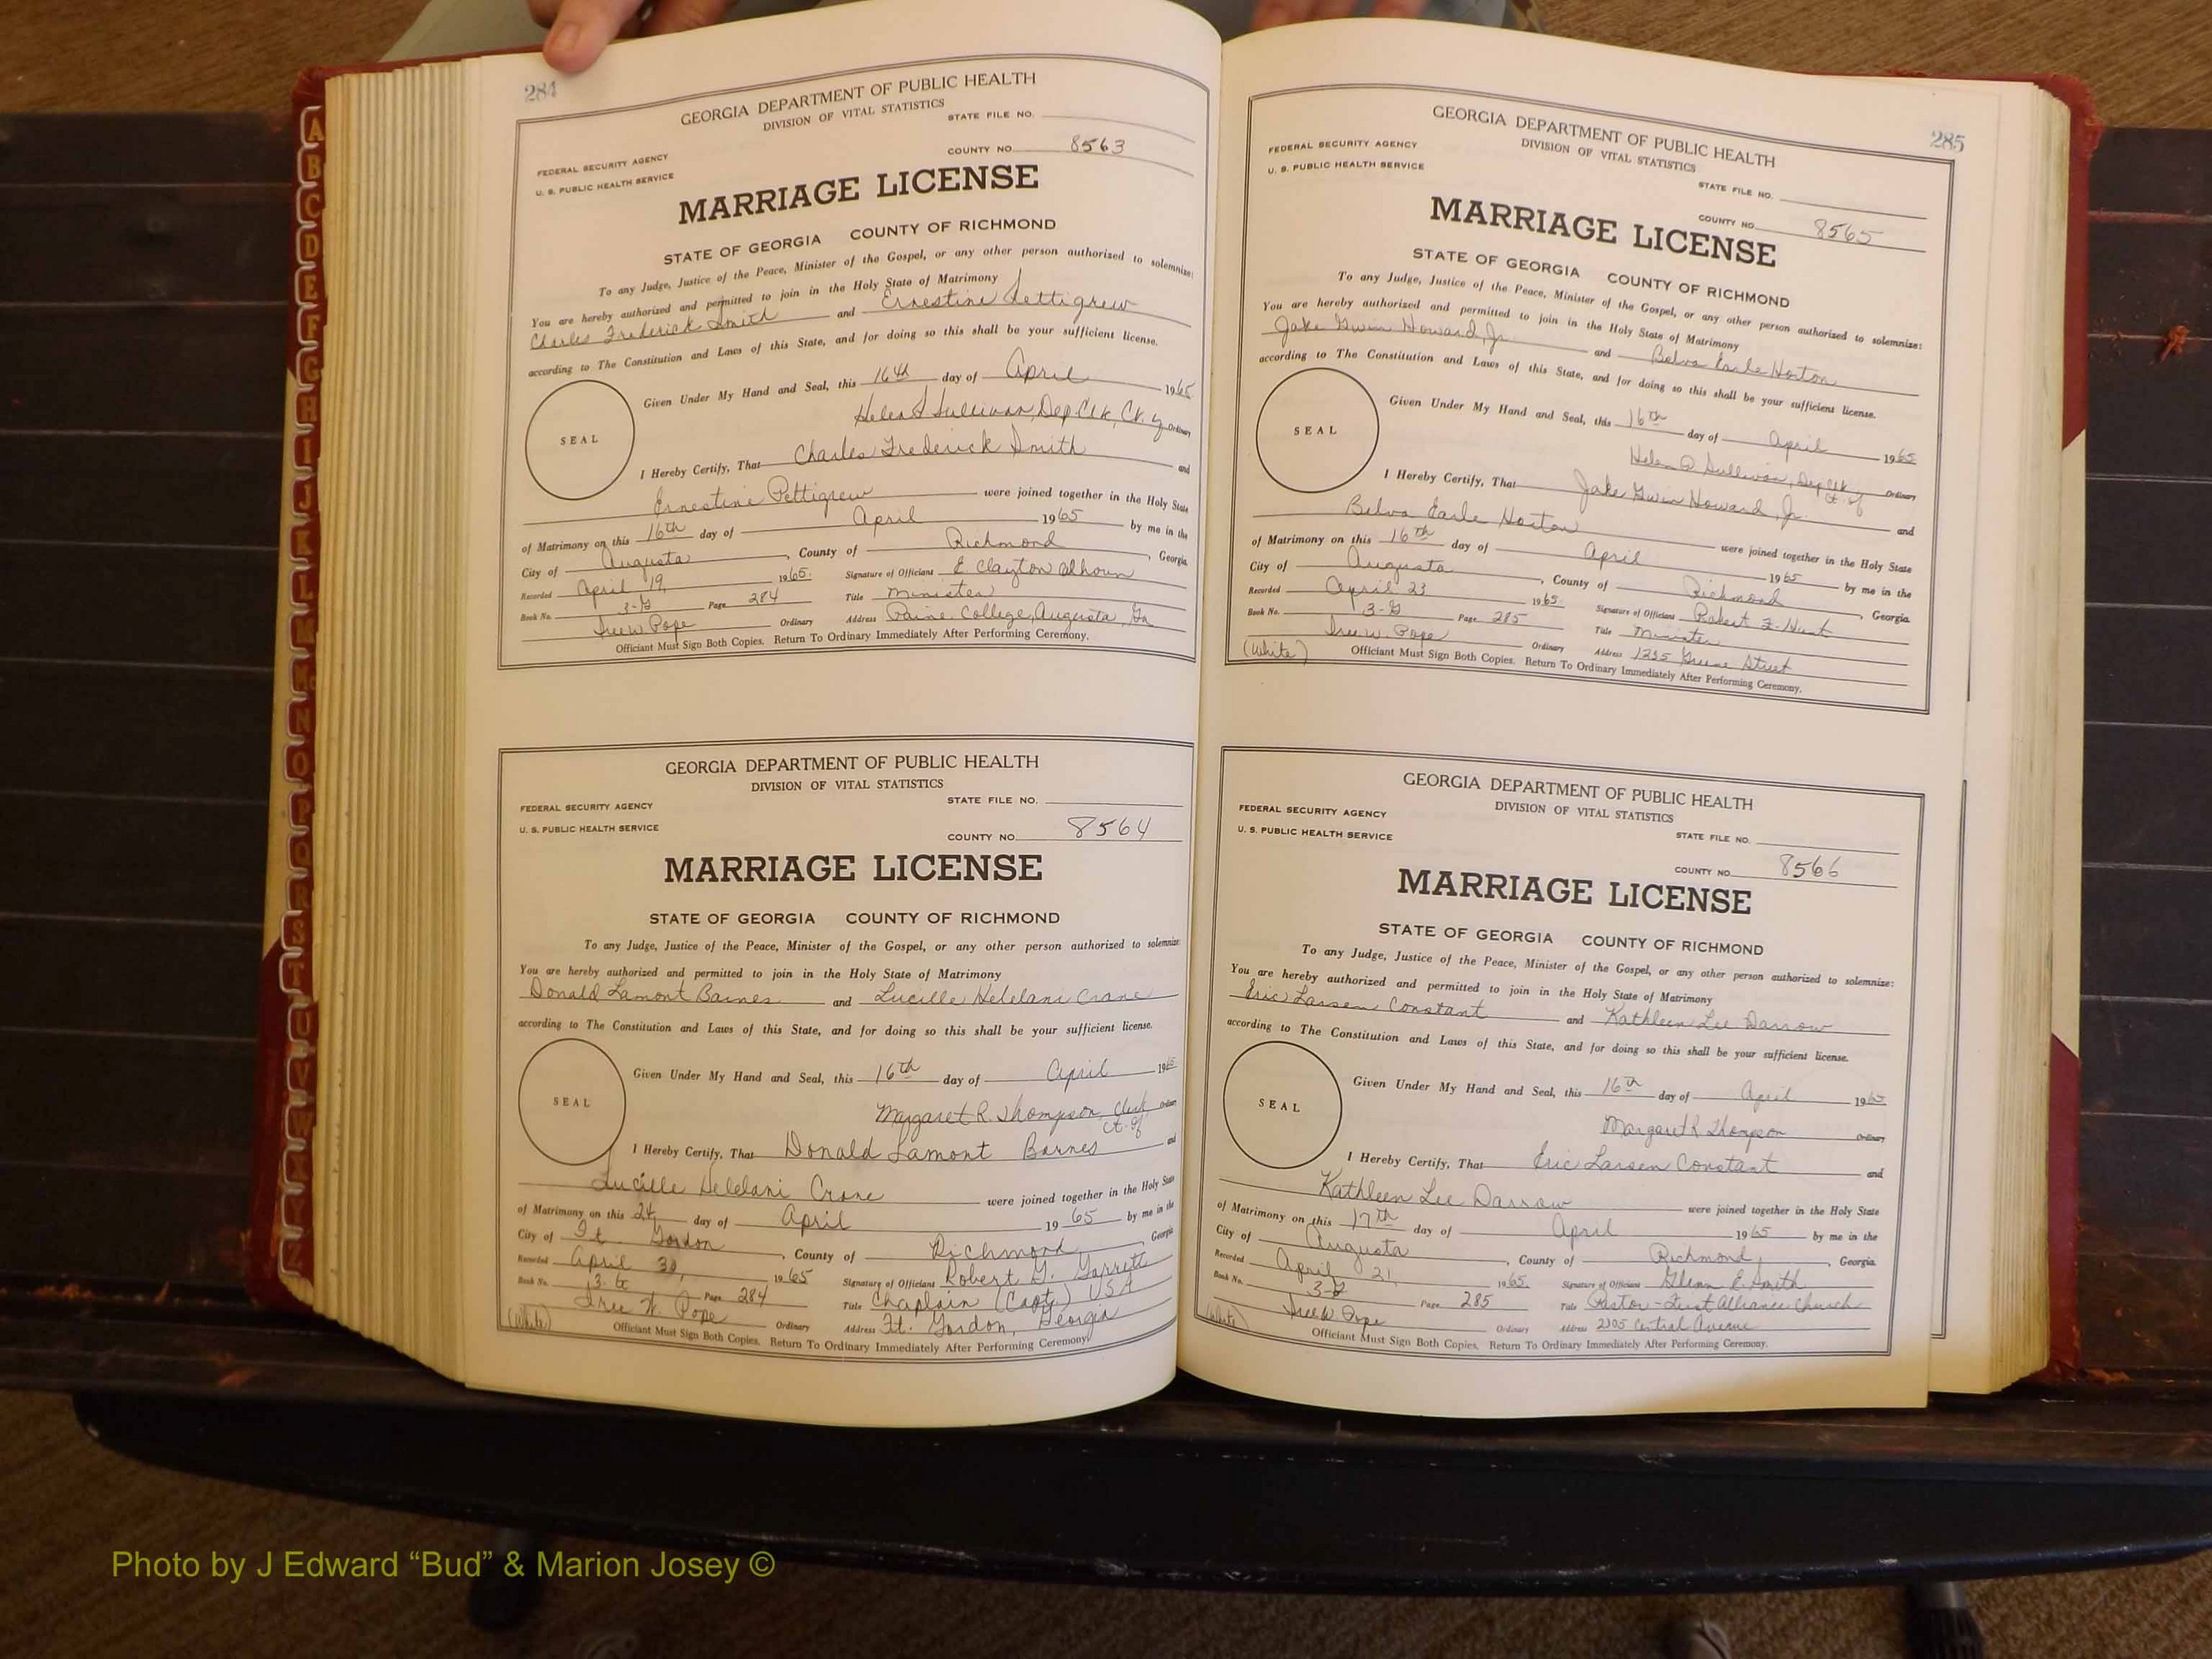 284
GEORGIA DEPARTMENT OF PUBLIC HEALTH
DIVISION OF VITAL STATISTICS
STATE FILE NO.
FEDERAL SECURITY AGENCY
COUNTY NO. 8563
U. S. PUBLIC HEALTH SERVICE
MARRIAGE LICENSE
STATE OF GEORGIA COUNTY OF RICHMOND
To any Judge, Justice of the Peace, Minister of the Gospel, or any other person authorized to solemnize:
You are hereby authorized and permitted to join in the Holy State of Matrimony
Charles Frederick Smith and Ernestine Pettigrew
according to The Constitution and Laws of this State, and for doing so this shall be your sufficient license.
SEAL
Given Under My Hand and Seal, this 16th day of April 1965
Helen Sullivan, Dep. Clk, Ct. of Ordinary
I Hereby Certify, That Charles Frederick Smith and
Ernestine Pettigrew were joined together in the Holy State
of Matrimony on this 16th day of April 1965 by me in the
City of Augusta, County of Richmond, Georgia
Recorded April 19, 1965. Signature of Officiant E. Clayton Calhoun
Book No. 3-G Page 284 Title Minister
Iree W. Pope Ordinary Address Paine College, Augusta, Ga
Officiant Must Sign Both Copies. Return To Ordinary Immediately After Performing Ceremony.
GEORGIA DEPARTMENT OF PUBLIC HEALTH
DIVISION OF VITAL STATISTICS
STATE FILE NO.
FEDERAL SECURITY AGENCY
U. S. PUBLIC HEALTH SERVICE
COUNTY NO. 8564
MARRIAGE LICENSE
STATE OF GEORGIA COUNTY OF RICHMOND
To any Judge, Justice of the Peace, Minister of the Gospel, or any other person authorized to solemnize:
You are hereby authorized and permitted to join in the Holy State of Matrimony
Donald Lamont Barnes and Lucille Helelani Crane
according to The Constitution and Laws of this State, and for doing so this shall be your sufficient license.
SEAL
Given Under My Hand and Seal, this 16th day of April 1965
Margaret R. Thompson, Clerk Ordinary
Ct. of
I Hereby Certify, That Donald Lamont Barnes and
Lucille Helelani Crane were joined together in the Holy State
of Matrimony on this 24 day of April 1965 by me in the
City of Ft. Gordon, County of Richmond, Georgia
Recorded April 30, 1965 Signature of Officiant Robert G. Garrett
Book No. 3-G Page 284 Title Chaplain (Capt.) USA
Iree W. Pope Ordinary Address Ft. Gordon, Georgia
(White) Officiant Must Sign Both Copies. Return To Ordinary Immediately After Performing Ceremony.
285
GEORGIA DEPARTMENT OF PUBLIC HEALTH
DIVISION OF VITAL STATISTICS
FEDERAL SECURITY AGENCY
U. S. PUBLIC HEALTH SERVICE
STATE FILE NO.
COUNTY NO. 8565
MARRIAGE LICENSE
STATE OF GEORGIA COUNTY OF RICHMOND
To any Judge, Justice of the Peace, Minister of the Gospel, or any other person authorized to solemnize:
You are hereby authorized and permitted to join in the Holy State of Matrimony
Jake Gwin Howard, Jr. and Belva Earle Horton
according to The Constitution and Laws of this State, and for doing so this shall be your sufficient license.
SEAL
Given Under My Hand and Seal, this 16th day of April 1965
Helen Sullivan, Dep Clk Ordinary
Ct. of
I Hereby Certify, That Jake Gwin Howard, Jr. and
Belva Earle Horton were joined together in the Holy State
of Matrimony on this 16th day of April 1965 by me in the
City of Augusta, County of Richmond, Georgia
Recorded April 23 1965. Signature of Officiant Robert Hunt
Book No. 3-G Page 285 Title Minister
Iree W. Pope Ordinary Address 1235 Greene Street
(White) Officiant Must Sign Both Copies. Return To Ordinary Immediately After Performing Ceremony.
GEORGIA DEPARTMENT OF PUBLIC HEALTH
DIVISION OF VITAL STATISTICS
FEDERAL SECURITY AGENCY
U. S. PUBLIC HEALTH SERVICE
STATE FILE NO.
COUNTY NO. 8566
MARRIAGE LICENSE
STATE OF GEORGIA COUNTY OF RICHMOND
To any Judge, Justice of the Peace, Minister of the Gospel, or any other person authorized to solemnize:
You are hereby authorized and permitted to join in the Holy State of Matrimony
Eric Larsen Constant and Kathleen Lee Darrow
according to The Constitution and Laws of this State, and for doing so this shall be your sufficient license.
SEAL
Given Under My Hand and Seal, this 16th day of April 1965
Margaret R Thompson Ordinary
I Hereby Certify, That Eric Larsen Constant and
Kathleen Lee Darrow were joined together in the Holy State
of Matrimony on this 17th day of April 1965 by me in the
City of Augusta, County of Richmond, Georgia
Recorded April 21, 1965. Signature of Officiant Glenn E. Smith
Book No. 3-G Page 285 Title Pastor-First Alliance Church
Iree W. Pope Ordinary Address 2305 Central Avenue
(White) Officiant Must Sign Both Copies. Return To Ordinary Immediately After Performing Ceremony.
A
B
C
D
E
F
G
H
I
J
K
L
M
Mc
N
O
P
Q
R
S
T
U
V
W
X
Y
Z
Photo by J Edward “Bud” & Marion Josey ©